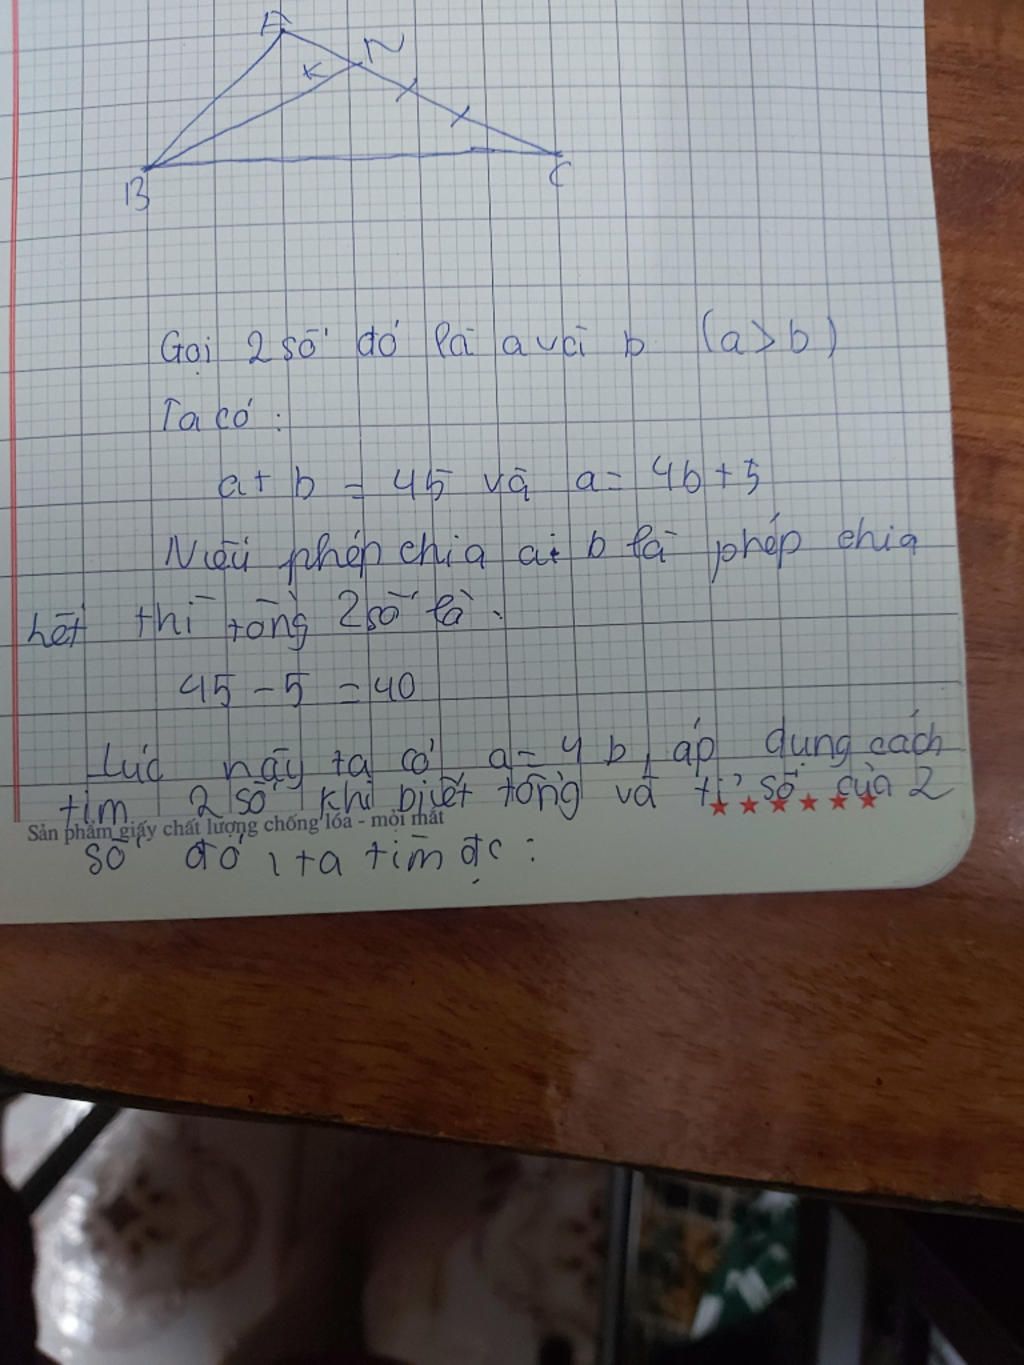 A
N
K
B
C
Gọi 2 số đó là a và b (a > b)
Ta có:
a + b = 45 và a = 4b + 5
Nếu phép chia a : b là phép chia
hết thì tổng 2 số là:
45 - 5 = 40
Lúc này ta có a = 4b, áp dụng cách
tìm 2 số khi biết tổng và tỉ số của 2
Sản phẩm giấy chất lượng chống lóa - mỏi mắt
số đó, ta tìm đc: